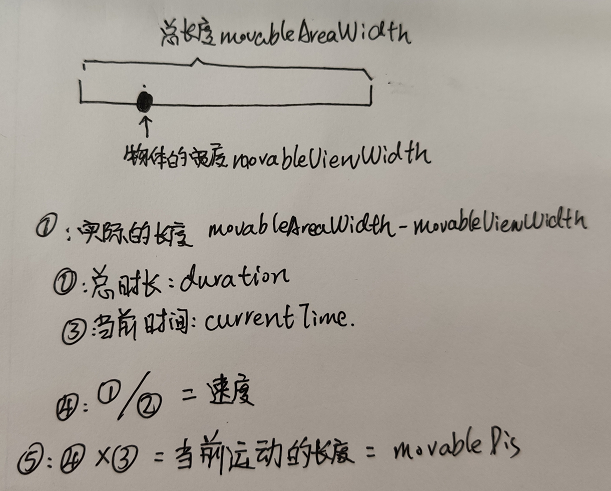 总长度movableAreaWidth
物体的宽度movableViewWidth
①:实际的长度 movableAreaWidth-movableViewWidth
②:总时长:duration
③当前时间:currentTime.
④:①/② = 速度
⑤:④×③=当前运动的长度= movableDis